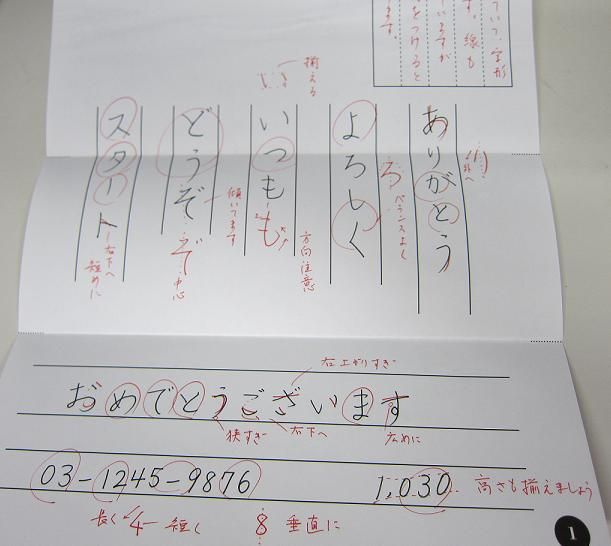 ていて、字形
す。線も
いますが
をつけると
ます。
ありがとう
り
外へ
よろしく
ろ
バランスよく
いつも
揃える
も
方向注意
どうぞ
傾いてます
ぞ
中心
スタート
右下へ
短めに
右上がりすぎ
おめでとうございます
狭すぎ
右下へ
広めに
03-1245-9876
1,030
高さも揃えましょう
長く
4
短く
8
垂直に
1